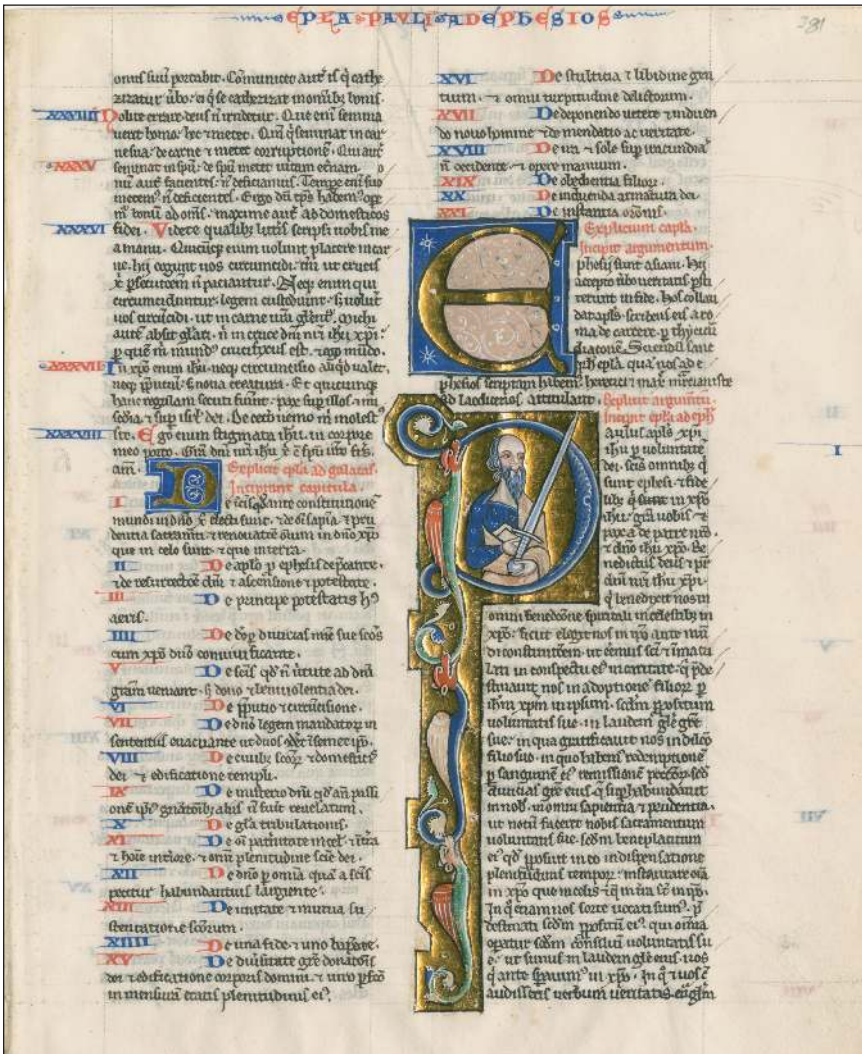 EPLA PAVLI AD EPHESIOS
381
onus suu portabit. Comunicet aut is q cathe
zizatur ubo. ei q se catherizat in omnibz bonis.
XXXIIII Nolite errare. deus n irridetur. Que eni semina
uerit homo. hec et metet. Qm q seminat in car
ne sua. de carne et metet corruptione. Qui aut
XXXV seminat in spu. de spu metet uitam etnam.
metem n deficientes. Ergo du tps habem ope
m bonu ad oms. maxime aut ad domesticos
XXXVI fidei. Videte qualibz litis scripsi uobis me
a manu. Quicuq enim uolunt placere in car
ne. hii cogunt uos circumcidi. tm ut crucis
x psecutioem n paciantur. Neq enim qui
circumciduntur. legem custodiunt. s uolut
uos circucidi. ut in carne ura glent. Michi
aute absit glari. n in cruce dni nri ihu xpi.
p que m mund crucifixus est. et ego mudo.
XXXVII In xpo enim ihu. neq circumcisio aliqd ualet.
neq pputiu. s noua creatura. Et quicunq
hanc regulam secuti fuint. pax sup illos et mi
scdia. et sup isrl dei. De ceto nemo m molest
XXXVIII sit. Ego enim stigmata ihu in corpore
meo porto. Gra dni nri ihu x c spu uro frs.
am. Explicit epla ad galatas.
Incipiunt capitula.
mundi in dno x electi sunt. et de oi sapia. et pru
dentia sacramti. et renouatoe oium in dno xpo
que in celo sunt. et que in terra.
II De aplo p ephesis depcante.
et de resurrectoe dni. et ascensione et potestate.
III De principe potestatis h
aeris.
IIII De do p diuicias mie sue scos
cum xpo dno conuiuificante.
V De scis qd n uirtute ad dni
gram ueniant. s dono et beniuolentia dei.
VI De pputio et circucisione.
VII De dno legem mandator in
VIII De ciuibz scor et domesticis
dei et edificatione templi.
IX De misterio dni qd an passi
one ipi gnatoibz aliis n fuit reuelatum.
X De gla tribulationis.
XI De oi patnitate in cel et in tra
et hoie intiore. et omi plenitudine scie dei.
XII De dno p omia qua a scis
petitur habundantius largiente.
XIII De unitate et mutua su
stentatione scorum.
XIIII De una fide et uno bapte.
XV De diuisitate gre donatois
dei et edificatione corporis domini. et uiro pfco
in mensuram etatis plenitudinis ei.
XVI De stulticia et libidine gen
tium. et omiu turpitudine delictorum.
XVII De deponendo uetere et induen
do nouo homine et de mendatio ac ueritate.
XVIII De ira et sole sup iracundia
n occidente. et opere manuum.
XIX De obedientia filior.
XX De induenda armatura dei
XXI De instantia orois.
Expliciunt capla.
Incipit argumentum.
E phesii sunt asiani. Hii
accepto ubo ueritatis psti
terunt in fide. Hos collau
dat apls scribens eis a ro
ma de carcere. p thyticu
diaconem.
ad laodicenos attitulant. Explicit argumtu.
Incipit epla ad eph
P aulus apls xpi
ihu p uoluntate
dei. scis omnibz q
sunt ephesi. et fide
libz q sunt in xpo
ihu. gra uobis et
pax a deo patre nro
et dno ihu xpo. Be
nedictus deus et pat
dni nri ihu xpi.
q benedixit nos in
omni benedcone spiritali in celestibz in
xpo. sicut elegit nos in ipo ante mudi
di constitutoem. ut essemus sci et imacu
lati in conspectu ei in caritate. q pde
stinauit nos in adoptione filior p
ihm xpm in ipsum. scdm ppositum
uoluntatis sue. in laudem gle gre
sue. in qua gratificauit nos in dilco
filio suo. in quo habem redemptione
p sanguine ei remissione peccor. scdm
diuicias gre eius. q suphabundauit
in nob. in omni sapientia et prudentia.
ut notu faceret nobis sacramentum
uoluntatis sue. scdm beneplacitum
ei qd pposuit in eo in dispensatione
plenitudinis tempor. instaurare oia
in xpo que in celis et q in tra st in ipo.
In q etiam nos sorte uocati sum. p
destinati scdm ppositu ei. qui omia
opatur scdm consiliu uoluntatis su
e. ut simus in laudem gle eius. nos
q ante spauim in xpo. In q et uos c
audissetis uerbum ueritatis. euglm
I